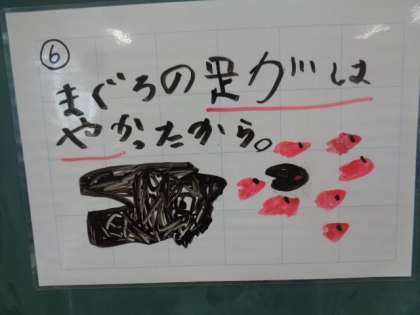 ⑥
まぐろの足がは
やかったから。